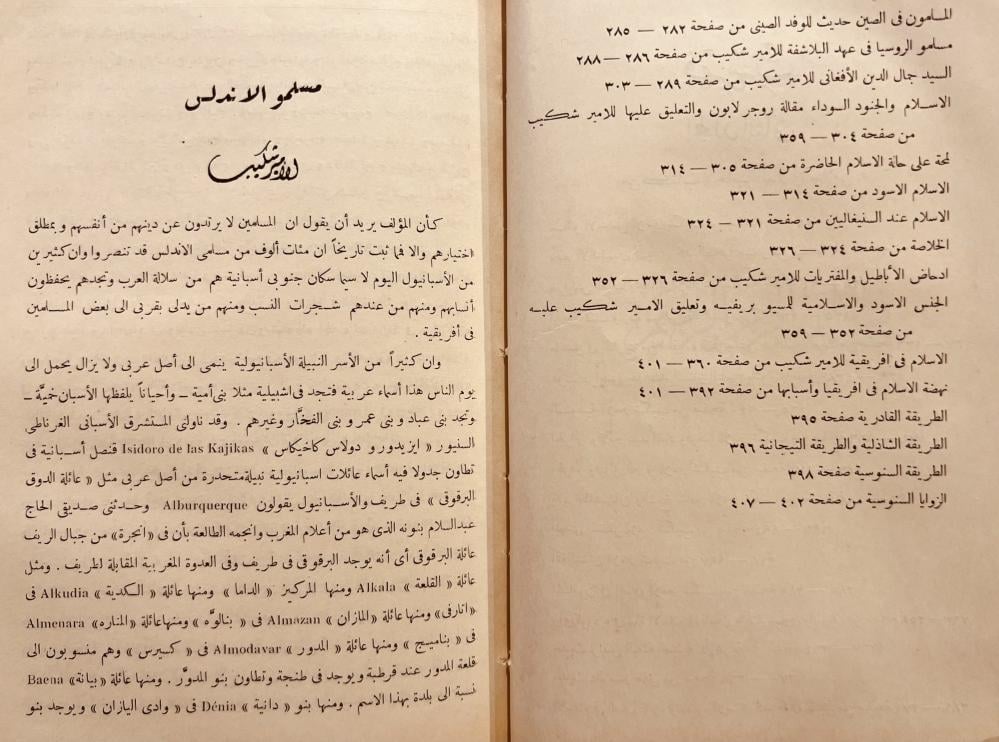 المسلمون فى الصين حديث للوفد الصينى من صفحة ٢٨٢ — ٢٨٥
مسلمو الروسيا فى عهد البلاشفة للامير شكيب من صفحة ٢٨٦ — ٢٨٨
السيد جمال الدين الأفغانى للامير شكيب من صفحة ٢٨٩ — ٣٠٣
الاسلام والجنود السوداء مقالة روجر لابون والتعليق عليها للامير شكيب
من صفحة ٣٠٤ — ٣٥٩
لمحة على حالة الاسلام الحاضرة من صفحة ٣٠٥ — ٣١٤
الاسلام الاسود من صفحة ٣١٤ — ٣٢١
الاسلام عند السنيغاليين من صفحة ٣٢١ — ٣٢٤
الخلاصة من صفحة ٣٢٤ — ٣٢٦
ادحاض الأباطيل والمفتريات للامير شكيب من صفحة ٣٢٦ — ٣٥٢
الجنس الاسود والاسلامية للمسيو بريفيه وتعليق الامير شكيب عليه
من صفحة ٣٥٢ — ٣٥٩
الاسلام فى افريقية للامير شكيب من صفحة ٣٦٠ — ٤٠١
نهضة الاسلام فى افريقيا وأسبابها من صفحة ٣٩٢ — ٤٠١
الطريقة القادرية صفحة ٣٩٥
الطريقة الشاذلية والطريقة التيجانية ٣٩٦
الطريقة السنوسية صفحة ٣٩٨
الزوايا السنوسية من صفحة ٤٠٢ — ٤٠٧
مسلمو الاندلس
للامير شكيب
كأن المؤلف يريد أن يقول ان المسلمين لا يرتدون عن دينهم من أنفسهم وبمطلق
اختيارهم والا فما ثبت تاريخاً ان مئات ألوف من مسلمى الاندلس قد تنصروا وان كثيرين
من الأسبانيول اليوم لا سيما سكان جنوبى أسبانية هم من سلالة العرب وتجدهم يحفظون
أنسابهم ومنهم من عندهم شجرات النسب ومنهم من يدلى بقربى الى بعض المسلمين
فى أفريقية .
وان كثيراً من الأسر النبيلة الأسبانيولية ينمى الى أصل عربى ولا يزال يحمل الى
يوم الناس هذا أسماء عربية فتجد فى اشبيلية مثلا بنى أمية — وأحياناً يلفظها الأسبان خميَّة —
وتجد بنى عباد وبنى عمر وبنى الفخَّار وغيرهم . وقد ناولنى المستشرق الأسبانى الغرناطى
السنيور « ايزيدورو دولاس كاخيكاس » Isidoro de las Kajikas قنصل أسبانية فى
تطاون جدولا فيه أسماء عائلات اسبانيولية نبيلة متحدرة من أصل عربى مثل « عائلة الدوق
البرقوقى » فى طريف والأسبانيول يقولون Alburquerque وحدثنى صديقى الحاج
عبدالسلام بنونه الذى هو من أعلام المغرب وانجمه الطالعة بأن فى «انجرة» من جبال الريف
عائلة البرقوقى أى أنه يوجد البرقوقى فى طريف وفى العدوة المغربية المقابلة لطريف . ومثل
عائلة « القلعة » Alkala ومنها المركيز « الداما » ومنها عائلة « الكدية » Alkudia فى
«اتارفى» ومنها عائلة «المازان» Almazan فى « بنالوَّه » ومنها عائلة «المناره» Almenara
فى « بناميج » ومنها عائلة « المدور » Almodavar فى « كسيرس » وهم منسوبون الى
قلعة المدور عند قرطبة ويوجد فى طنجة وتطاون بنو المدوَّر . ومنها عائلة «بيانة» Baena
نسبة الى بلدة بهذا الاسم . ومنها بنو « دانية » Dénia فى « وادى اليازان » ويوجد بنو